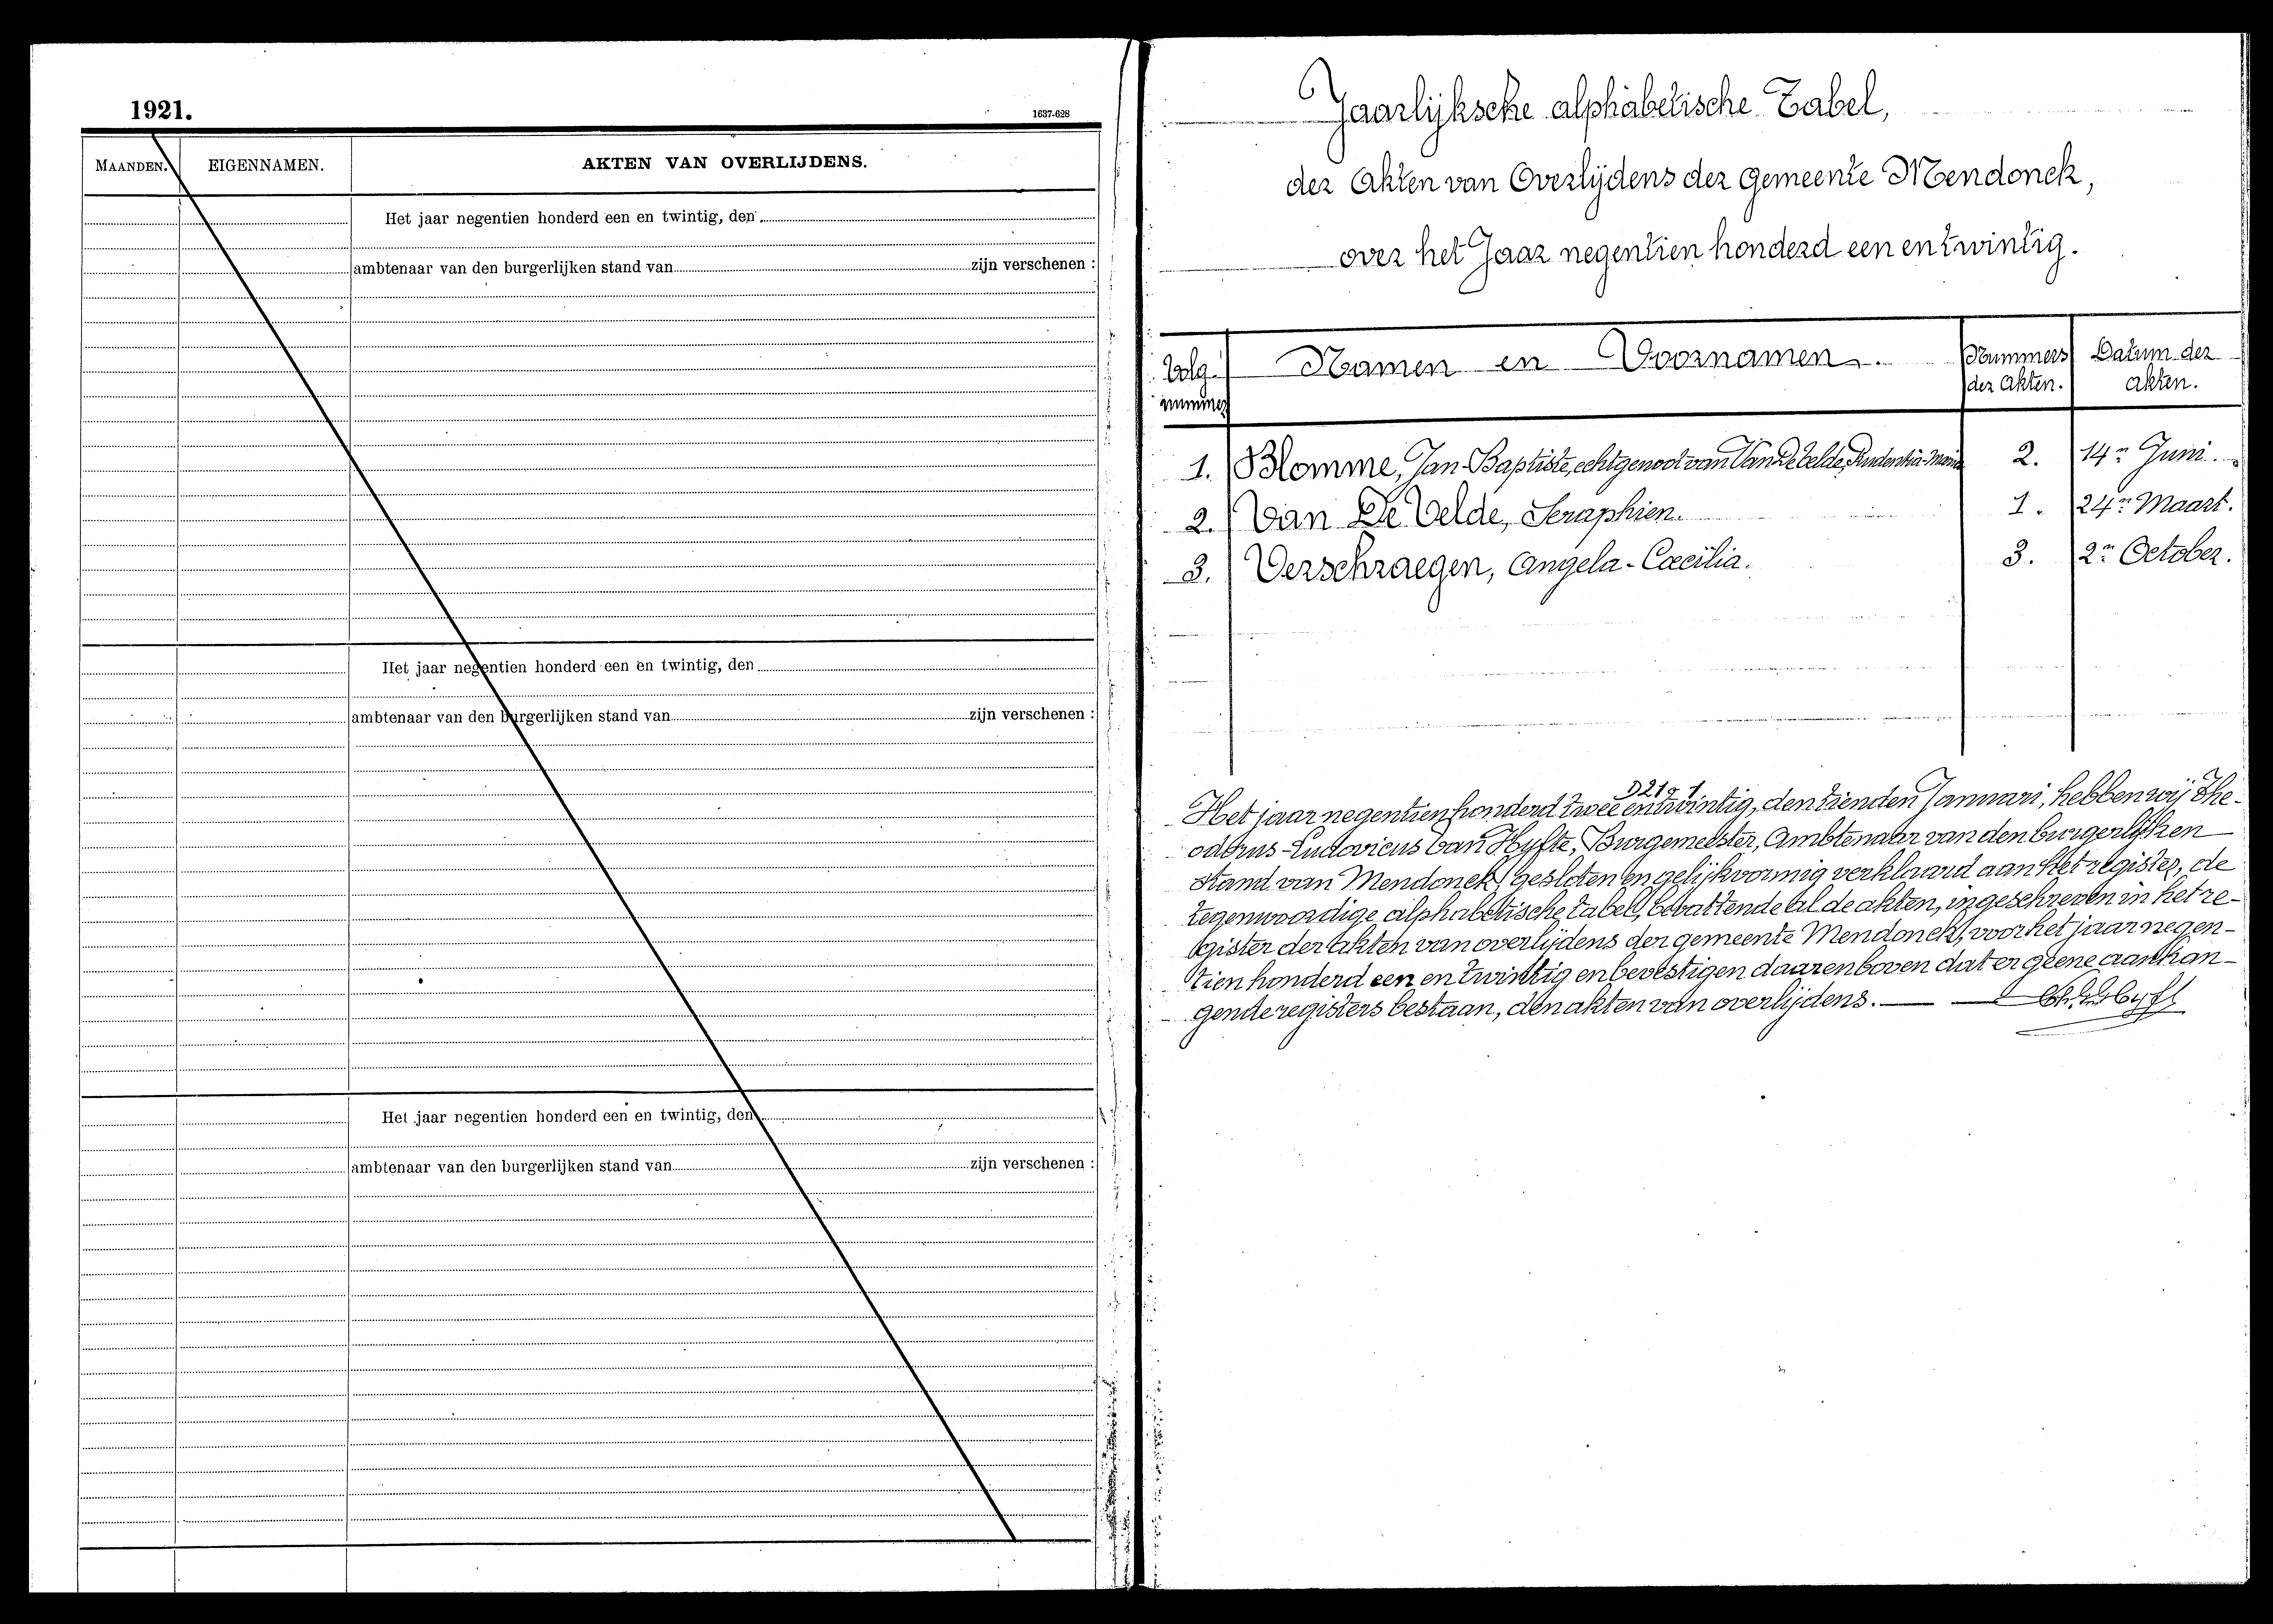 1921.
1637-628
MAANDEN. EIGENNAMEN. AKTEN VAN OVERLIJDENS.
Het jaar negentien honderd een en twintig, den
ambtenaar van den burgerlijken stand van zijn verschenen :
Het jaar negentien honderd een en twintig, den
ambtenaar van den burgerlijken stand van zijn verschenen :
Het jaar negentien honderd een en twintig, den
ambtenaar van den burgerlijken stand van zijn verschenen :
Jaarlijksche alphabetische Tabel,
der Akten van Overlijdens der gemeente Mendonck,
over het Jaar negentien honderd een en twintig.
Volg nummer Namen en Voornamen. Nummers der Akten. Datum der akten.
1. Blomme, Jan-Baptiste, echtgenoot van Van De Velde, Prudentia-Maria 2. 14n Juni.
2. Van De Velde, Seraphien. 1. 24n Maart.
3. Verschraegen, Angela-Cæcilia. 3. 2n October.
D21g 1
Het jaar negentien honderd twee en twintig, den tienden Januari, hebben wij The-
odorus-Ludovicus Van Hyfte, Burgemeester, Ambtenaar van den burgerlijken
stand van Mendonck, gesloten en gelijkvormig verklaard aan het register, de
tegenwoordige alphabetische tabel, bevattende al de akten, ingeschreven in het re-
gister der akten van overlijdens der gemeente Mendonck, voor het jaar negen-
tien honderd een en twintig en bevestigen daarenboven dat er geene aanhan-
gende registers bestaan, den akten van overlijdens.